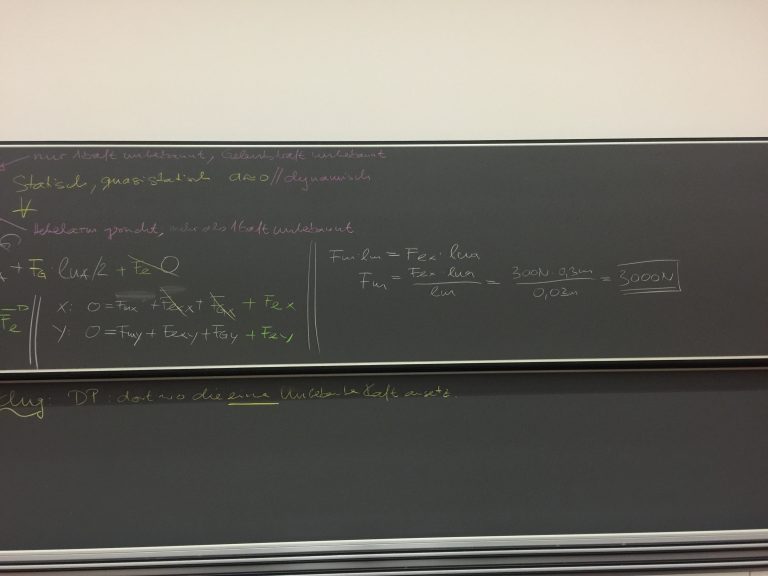 nur 1 Kraft unbekannt, Gelenkkraft unbekannt
Statisch, quasistatisch a≈0 // dynamisch
Hebelarm gesucht, mehr als 1 Kraft unbekannt
+ FG · lUA/2 + Fe · 0
Fe
X: 0 = Fmx + FExx + FGx + Fex
Y: 0 = Fmy + FExy + FGy + Fey
Fm · lm = FEx · lUA
Fm = FEx · lUA / lm = 300N · 0,3m / 0,03m = 3000N
DP: dort wo die eine unbekannte Kraft ansetzt.